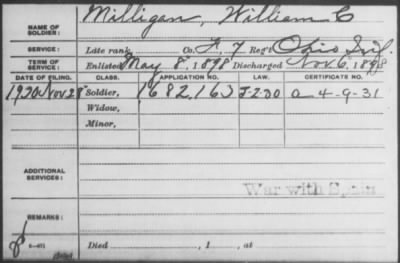 NAME OF SOLDIER: Milligan, William C
SERVICE: Late rank, Co. F, 7 Reg't Ohio Inf.
TERM OF SERVICE: Enlisted May 8, 1898 Discharged Nov 6, 1898
DATE OF FILING. CLASS. APPLICATION NO. LAW. CERTIFICATE NO.
1930 Nov 28 Soldier, 1682163 J-2-30 a 4-9-31
Widow,
Minor,
ADDITIONAL SERVICES:
War with Spain
REMARKS:
Died , 1 , at